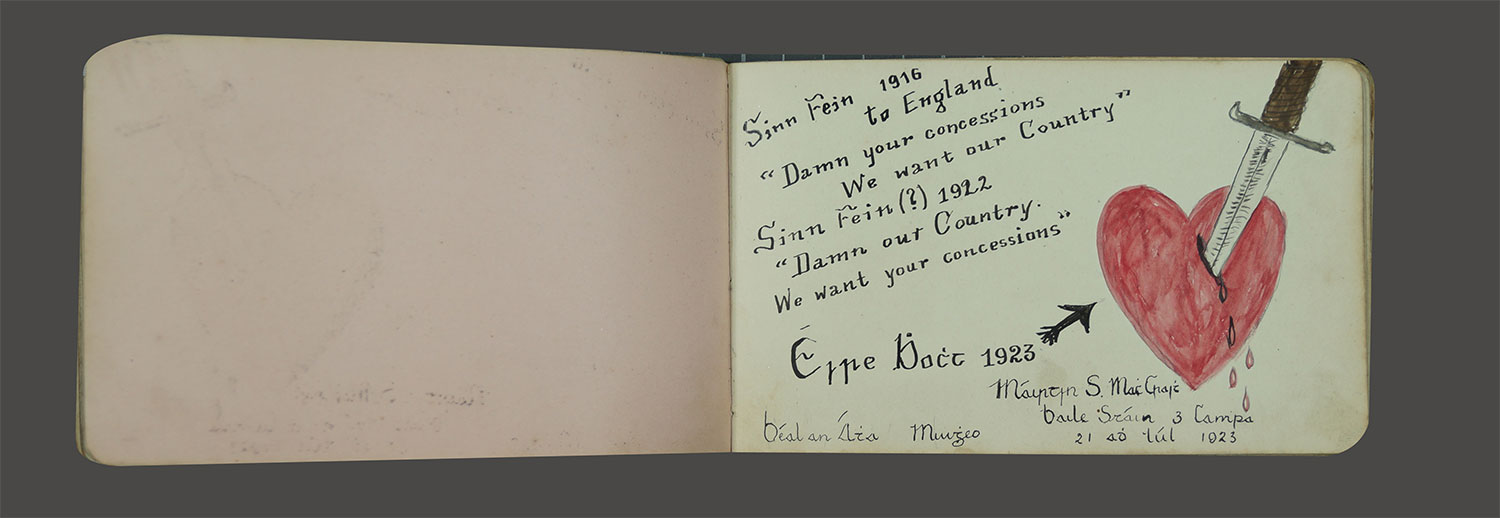 Sinn Féin 1916
to England
"Damn your concessions
We want our Country"
Sinn Féin (?) 1922
"Damn our Country.
We want your concessions"
Éire Ḃoċt 1923
Máirtín S. Mac
Baile Stáin 3 Campa
Béal an Áṫa Muiġeo
21 aḋ Iúl 1923